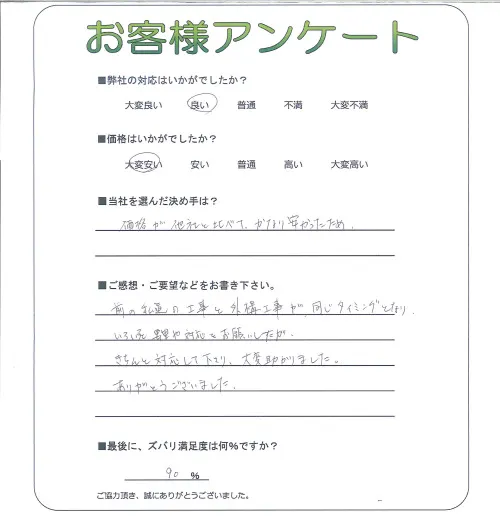 お客様アンケート
■弊社の対応はいかがでしたか？
大変良い 良い 普通 不満 大変不満
■価格はいかがでしたか？
大変安い 安い 普通 高い 大変高い
■当社を選んだ決め手は？
価格が他社と比べて、かなり安かったため。
■ご感想・ご要望などをお書き下さい。
前の私道の工事と外構工事が、同じタイミングとなり、
いろいろ 対応をお願いしたが、
きちんと対応して下さり、大変助かりました。
ありがとうございました。
■最後に、ズバリ満足度は何%ですか？
90 %
ご協力頂き、誠にありがとうございました。